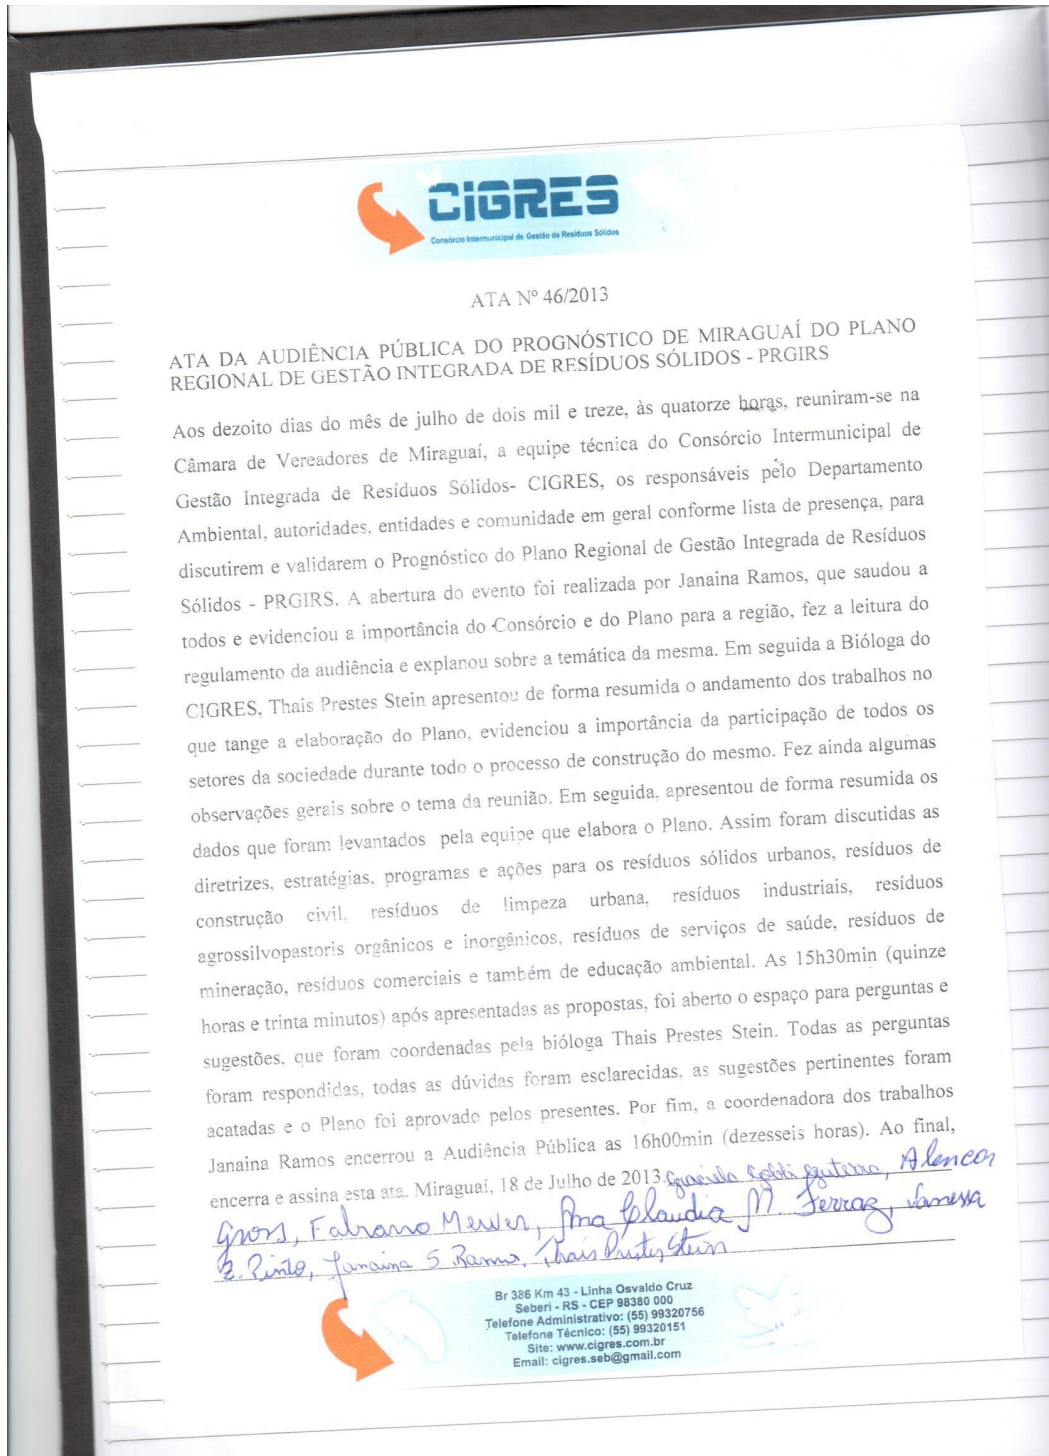 CIGRES
Consórcio Intermunicipal de Gestão de Resíduos Sólidos
ATA Nº 46/2013
ATA DA AUDIÊNCIA PÚBLICA DO PROGNÓSTICO DE MIRAGUAÍ DO PLANO
REGIONAL DE GESTÃO INTEGRADA DE RESÍDUOS SÓLIDOS - PRGIRS
Aos dezoito dias do mês de julho de dois mil e treze, às quatorze horas, reuniram-se na
Câmara de Vereadores de Miraguaí, a equipe técnica do Consórcio Intermunicipal de
Gestão Integrada de Resíduos Sólidos- CIGRES, os responsáveis pelo Departamento
Ambiental, autoridades, entidades e comunidade em geral conforme lista de presença, para
discutirem e validarem o Prognóstico do Plano Regional de Gestão Integrada de Resíduos
Sólidos - PRGIRS. A abertura do evento foi realizada por Janaina Ramos, que saudou a
todos e evidenciou a importância do Consórcio e do Plano para a região, fez a leitura do
regulamento da audiência e explanou sobre a temática da mesma. Em seguida a Bióloga do
CIGRES, Thais Prestes Stein apresentou de forma resumida o andamento dos trabalhos no
que tange a elaboração do Plano, evidenciou a importância da participação de todos os
setores da sociedade durante todo o processo de construção do mesmo. Fez ainda algumas
observações gerais sobre o tema da reunião. Em seguida, apresentou de forma resumida os
dados que foram levantados pela equipe que elabora o Plano. Assim foram discutidas as
diretrizes, estratégias, programas e ações para os resíduos sólidos urbanos, resíduos de
construção civil, resíduos de limpeza urbana, resíduos industriais, resíduos
agrossilvopastoris orgânicos e inorgânicos, resíduos de serviços de saúde, resíduos de
mineração, resíduos comerciais e também de educação ambiental. As 15h30min (quinze
horas e trinta minutos) após apresentadas as propostas, foi aberto o espaço para perguntas e
sugestões, que foram coordenadas pela bióloga Thais Prestes Stein. Todas as perguntas
foram respondidas, todas as dúvidas foram esclarecidas, as sugestões pertinentes foram
acatadas e o Plano foi aprovado pelos presentes. Por fim, a coordenadora dos trabalhos
Janaina Ramos encerrou a Audiência Pública as 16h00min (dezesseis horas). Ao final,
encerra e assina esta ata. Miraguaí, 18 de Julho de 2013. Alencar
Ana Claudia M. Ferraz, Vanessa
Z. Pinto, Janaina S Ramos, Thais Prestes Stein
Br 386 Km 43 - Linha Osvaldo Cruz
Seberi - RS - CEP 98380 000
Telefone Administrativo: (55) 99320756
Telefone Técnico: (55) 99320151
Site: www.cigres.com.br
Email: cigres.seb@gmail.com